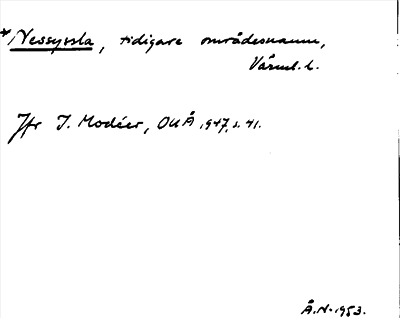 *Nessyssla, tidigare områdesnamn,
Värml. l.
Jfr I. Modéer, OUÅ 1947, s. 41.
Å.N. 1953.